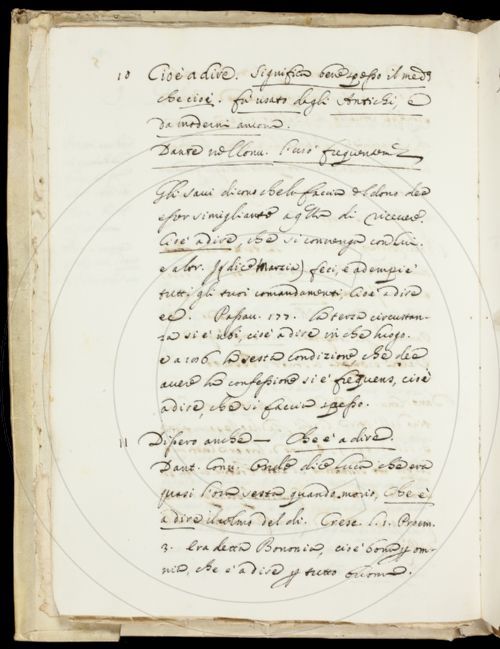 10 Cioè a dire. Significa bene spesso il med.º
che cioè. fu usato dagli Antichi, e
da moderni ancora.
Dante nel Conv. l'usò frequentem.te
Gli savi dicono che la faccia del dono dee
esser simigliante a q.lla di ricevere.
Cioè a dire, che si convenga con lui.
e alor. Io (dice Marzia) feci, e adempiè
tutti gli tuoi comandamenti, Cioè a dire
ec. Passav. 177. la terza circustan-
za si è ubi, cioè a dire in che luogo.
e a 106 la sesta condizione che dee
avere la confessione si è frequens, cioè
a dire, che si faccia spesso.
11 Dissero anche — Che è a dire.
Dant. Conv. Onde dice Luca che era
quasi l'ora sesta quando morio, Che è
a dire il colmo del dì. Cresc. l. 1. Proem.
3. Era detta Bononia, cioè bona p om-
nia, che è a dire p tutto buona.